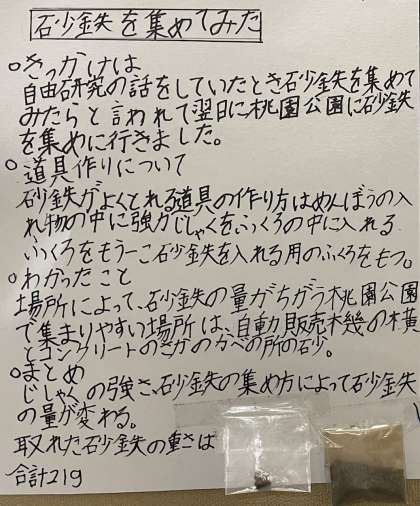 砂鉄を集めてみた
○きっかけは
自由研究の話をしていたとき砂鉄を集めて
みたらと言われて翌日に桃園公園に砂鉄
を集めに行きました。
○道具作りについて
砂鉄がよくとれる道具の作り方はめんぼうの入
れ物の中に強力じしゃくをふくろの中に入れる
ふくろをもう一こ砂鉄を入れる用のふくろをもつ。
○わかったこと
場所によって、砂鉄の量がちがう桃園公園
で集まりやすい場所は、自動販売機の横
とコンクリートのさかのかべの所の砂。
○まとめ
じしゃくの強さ、砂鉄の集め方によって砂鉄
の量が変わる。
取れた砂鉄の重さは
合計21g